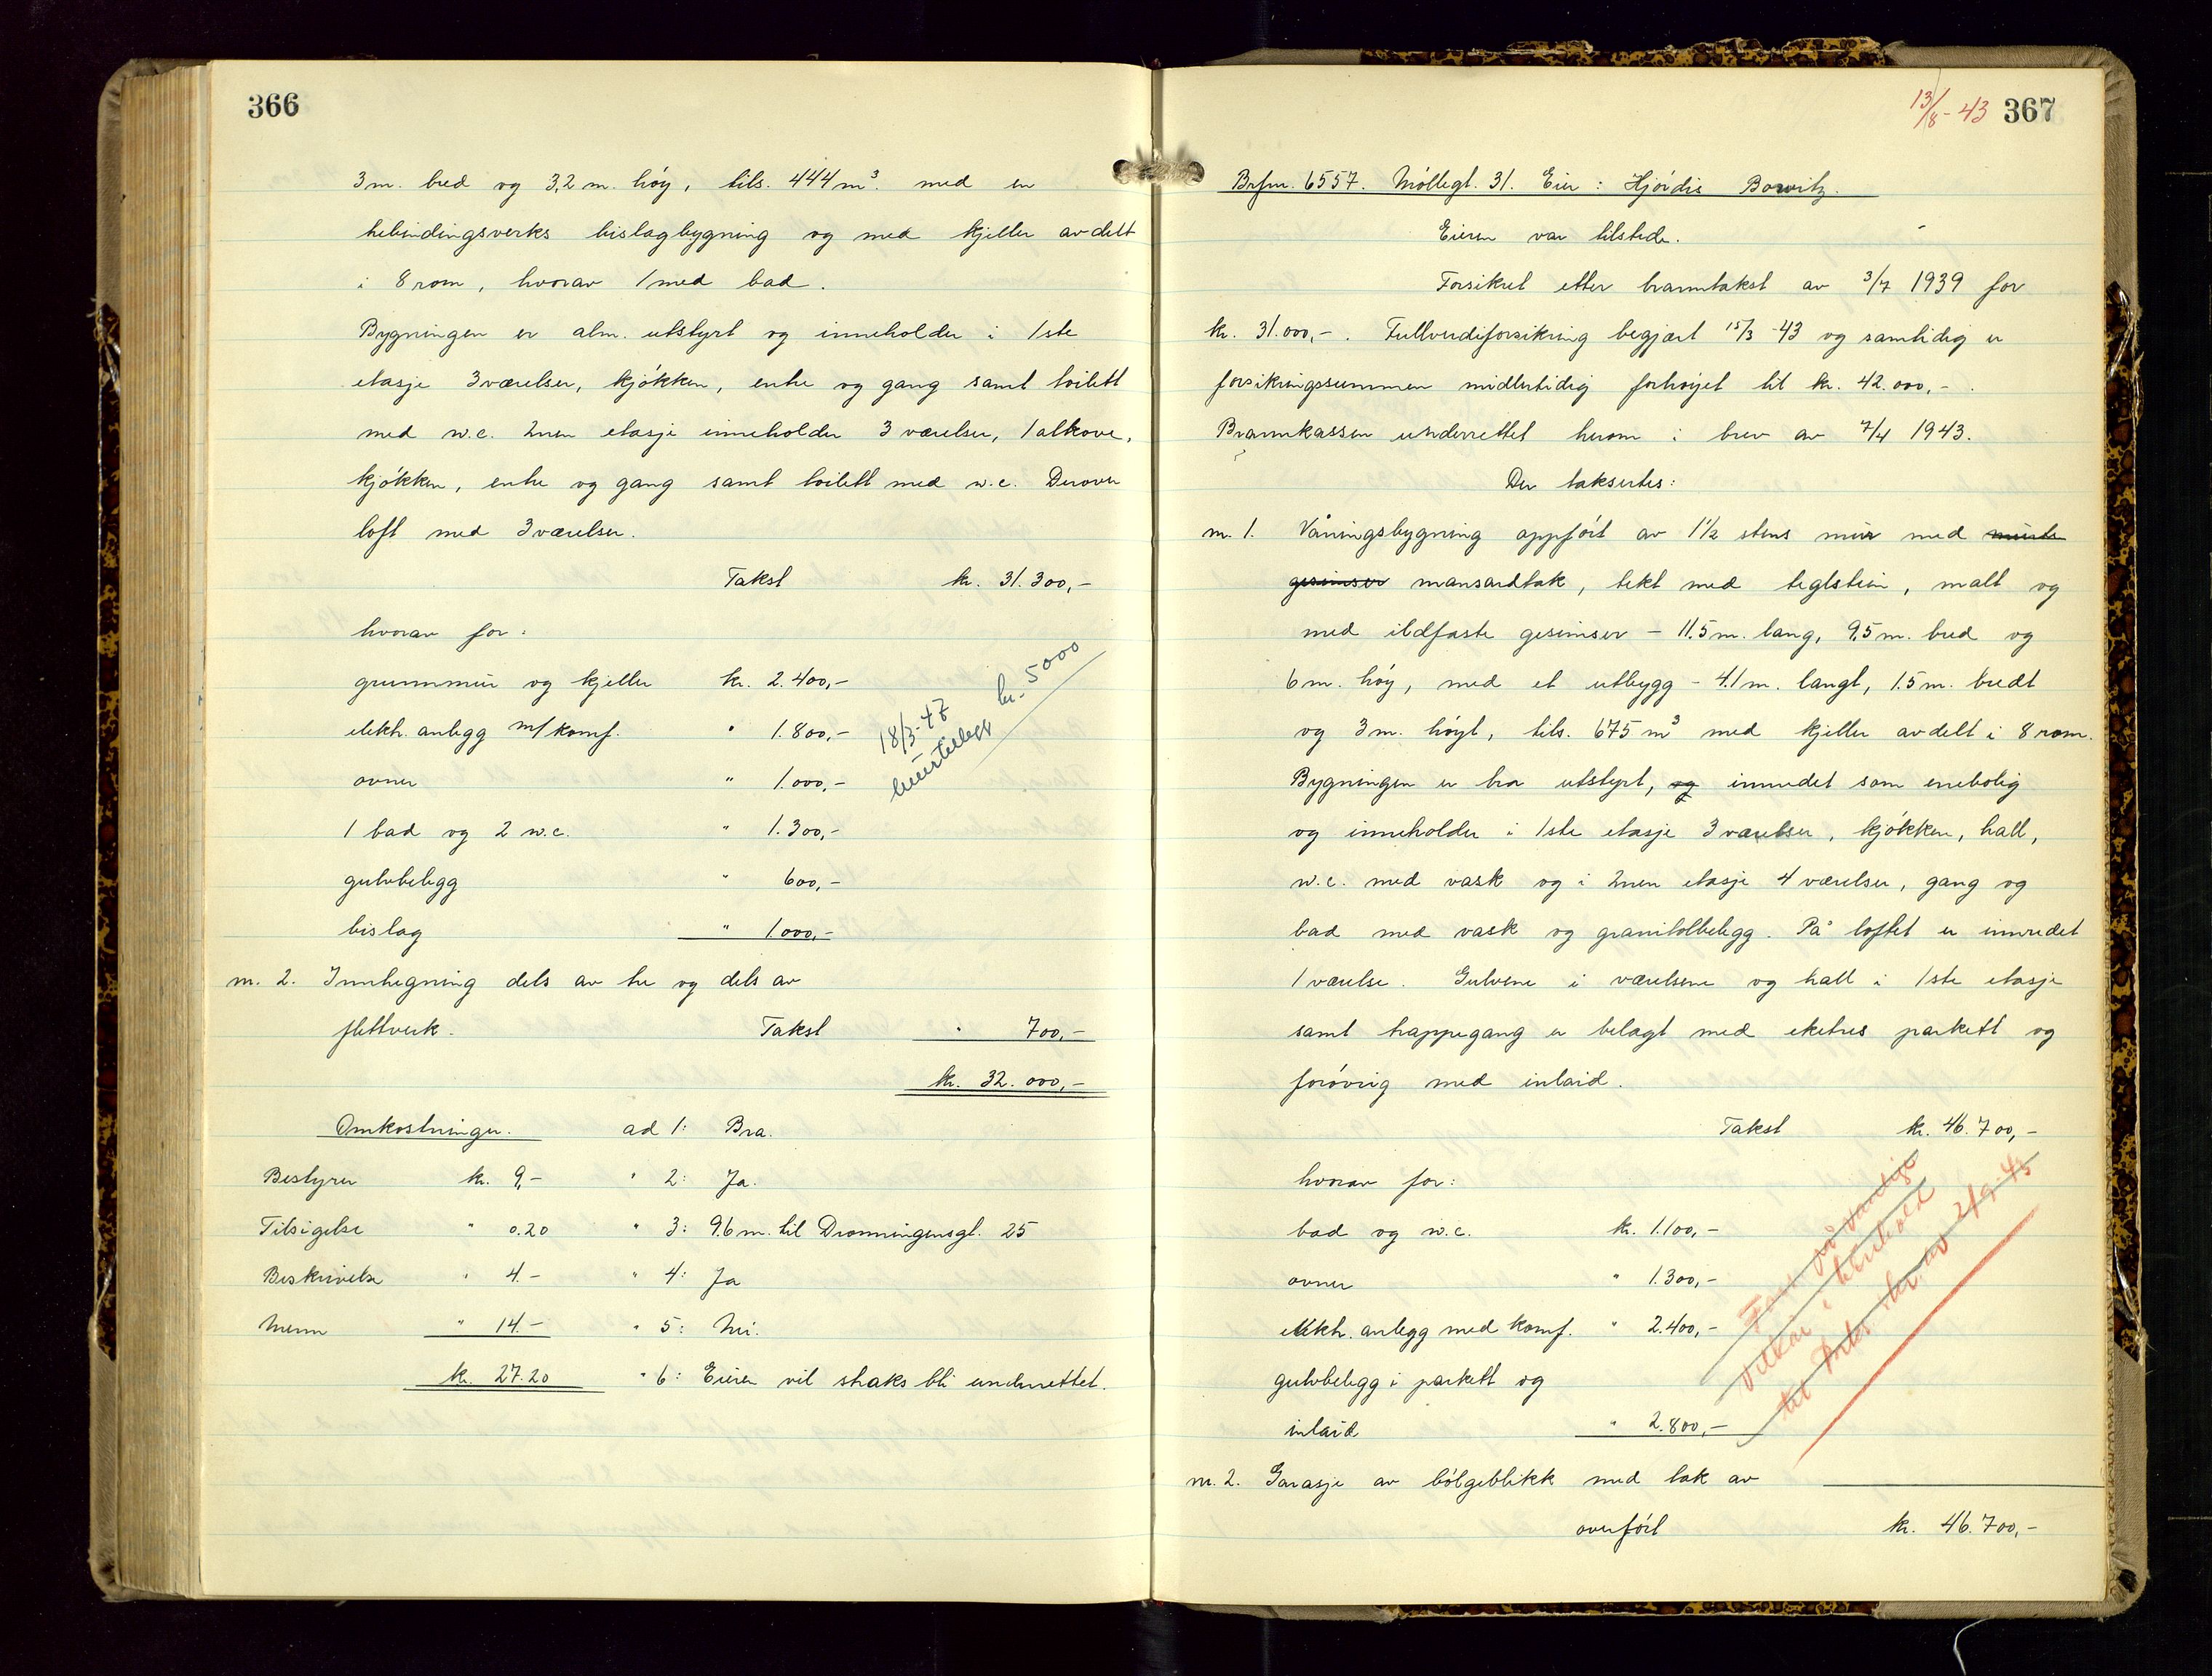 366
3 m. bred og 3,2 m. høy, tils. 444 m³. med en
trebindingsverks bislagbygning og med kjeller avdelt
i 8 rom, hvorav 1 med bad.
Bygningen er alm. utstyrt og inneholder i 1ste
etasje 3 værelser, kjøkken, entre og gang samt toilett
med w.c. 2nen etasje inneholder 3 værelser, 1 alkove,
kjøkken, entre og gang samt toilett med w.c. Derover
loft med 3 værelser.
Takst kr. 31.300,-
hvorav for:
grunnmur og kjeller kr. 2.400,-
elektr. anlegg m/komf. " 1.800,-
ovner " 1.000,-
1 bad og 2 w.c. " 1.300,-
gulvbelegg " 600,-
bislag " 1.000,-
18/3-47
kr. 5000
nr. 2. Innhegning dels av tre og dels av
flettverk. Takst " 700,-
kr. 32.000,-
Omkostninger. ad 1: Bra.
Bestyrer kr. 9,- " 2: Ja.
Tilsigelse " 0.20 " 3: 9.6 m. til Dronningensgt. 25
Beskrivelse " 4.- " 4: Ja
Menn " 14.- " 5: Nei.
kr. 27.20 " 6: Eieren vil straks bli underrettet.
13/8-43 367
Brfnr. 6557. Møllegt. 31. Eier: Hjørdis Bowitz.
Eieren var tilstede.
Forsikret etter branntakst av 3/7 1939 for
kr. 31.000,-. Fullverdiforsikring begjært 15/3-43 og samtidig er
forsikringssummen midlertidig forhøyet til kr. 42.000,-.
Brannkassen underrettet herom i brev av 7/4 1943.
Der takserte:
nr. 1. Våningsbygning oppført av 1½ stens mur med murte
gesimser mansardtak, tekt med teglstein, malt og
med ildfaste gesimser - 11.5 m. lang, 9.5 m. bred og
6 m. høy, med et utbygg - 4.1 m. langt, 1.5 m. bredt
og 3 m. høyt, tils. 675 m³ med kjeller avdelt i 8 rom.
Bygningen er bra utstyrt, og innredet som enebolig
og inneholder i 1ste etasje 3 værelser, kjøkken, hall,
w.c. med vask og i 2nen etasje 4 værelser, gang og
bad med vask og granitolbelegg. På loftet er innredet
1 værelse. Gulvene i værelsene og hall i 1ste etasje
samt trappegang er belagt med eketres parkett og
forøvrig med inlaid.
Takst kr. 46.700,-
hvorav for:
bad og w.c. kr. 1.100,-
ovner " 1.300,-
elektr. anlegg med komf. " 2.400,-
gulvbelegg i parkett og
inlaid " 2.800,-
på vanlige
vilkår i henhold
til br. av 2/9-43
nr. 2. Garasje av bølgeblikk med tak av
overført kr. 46.700,-